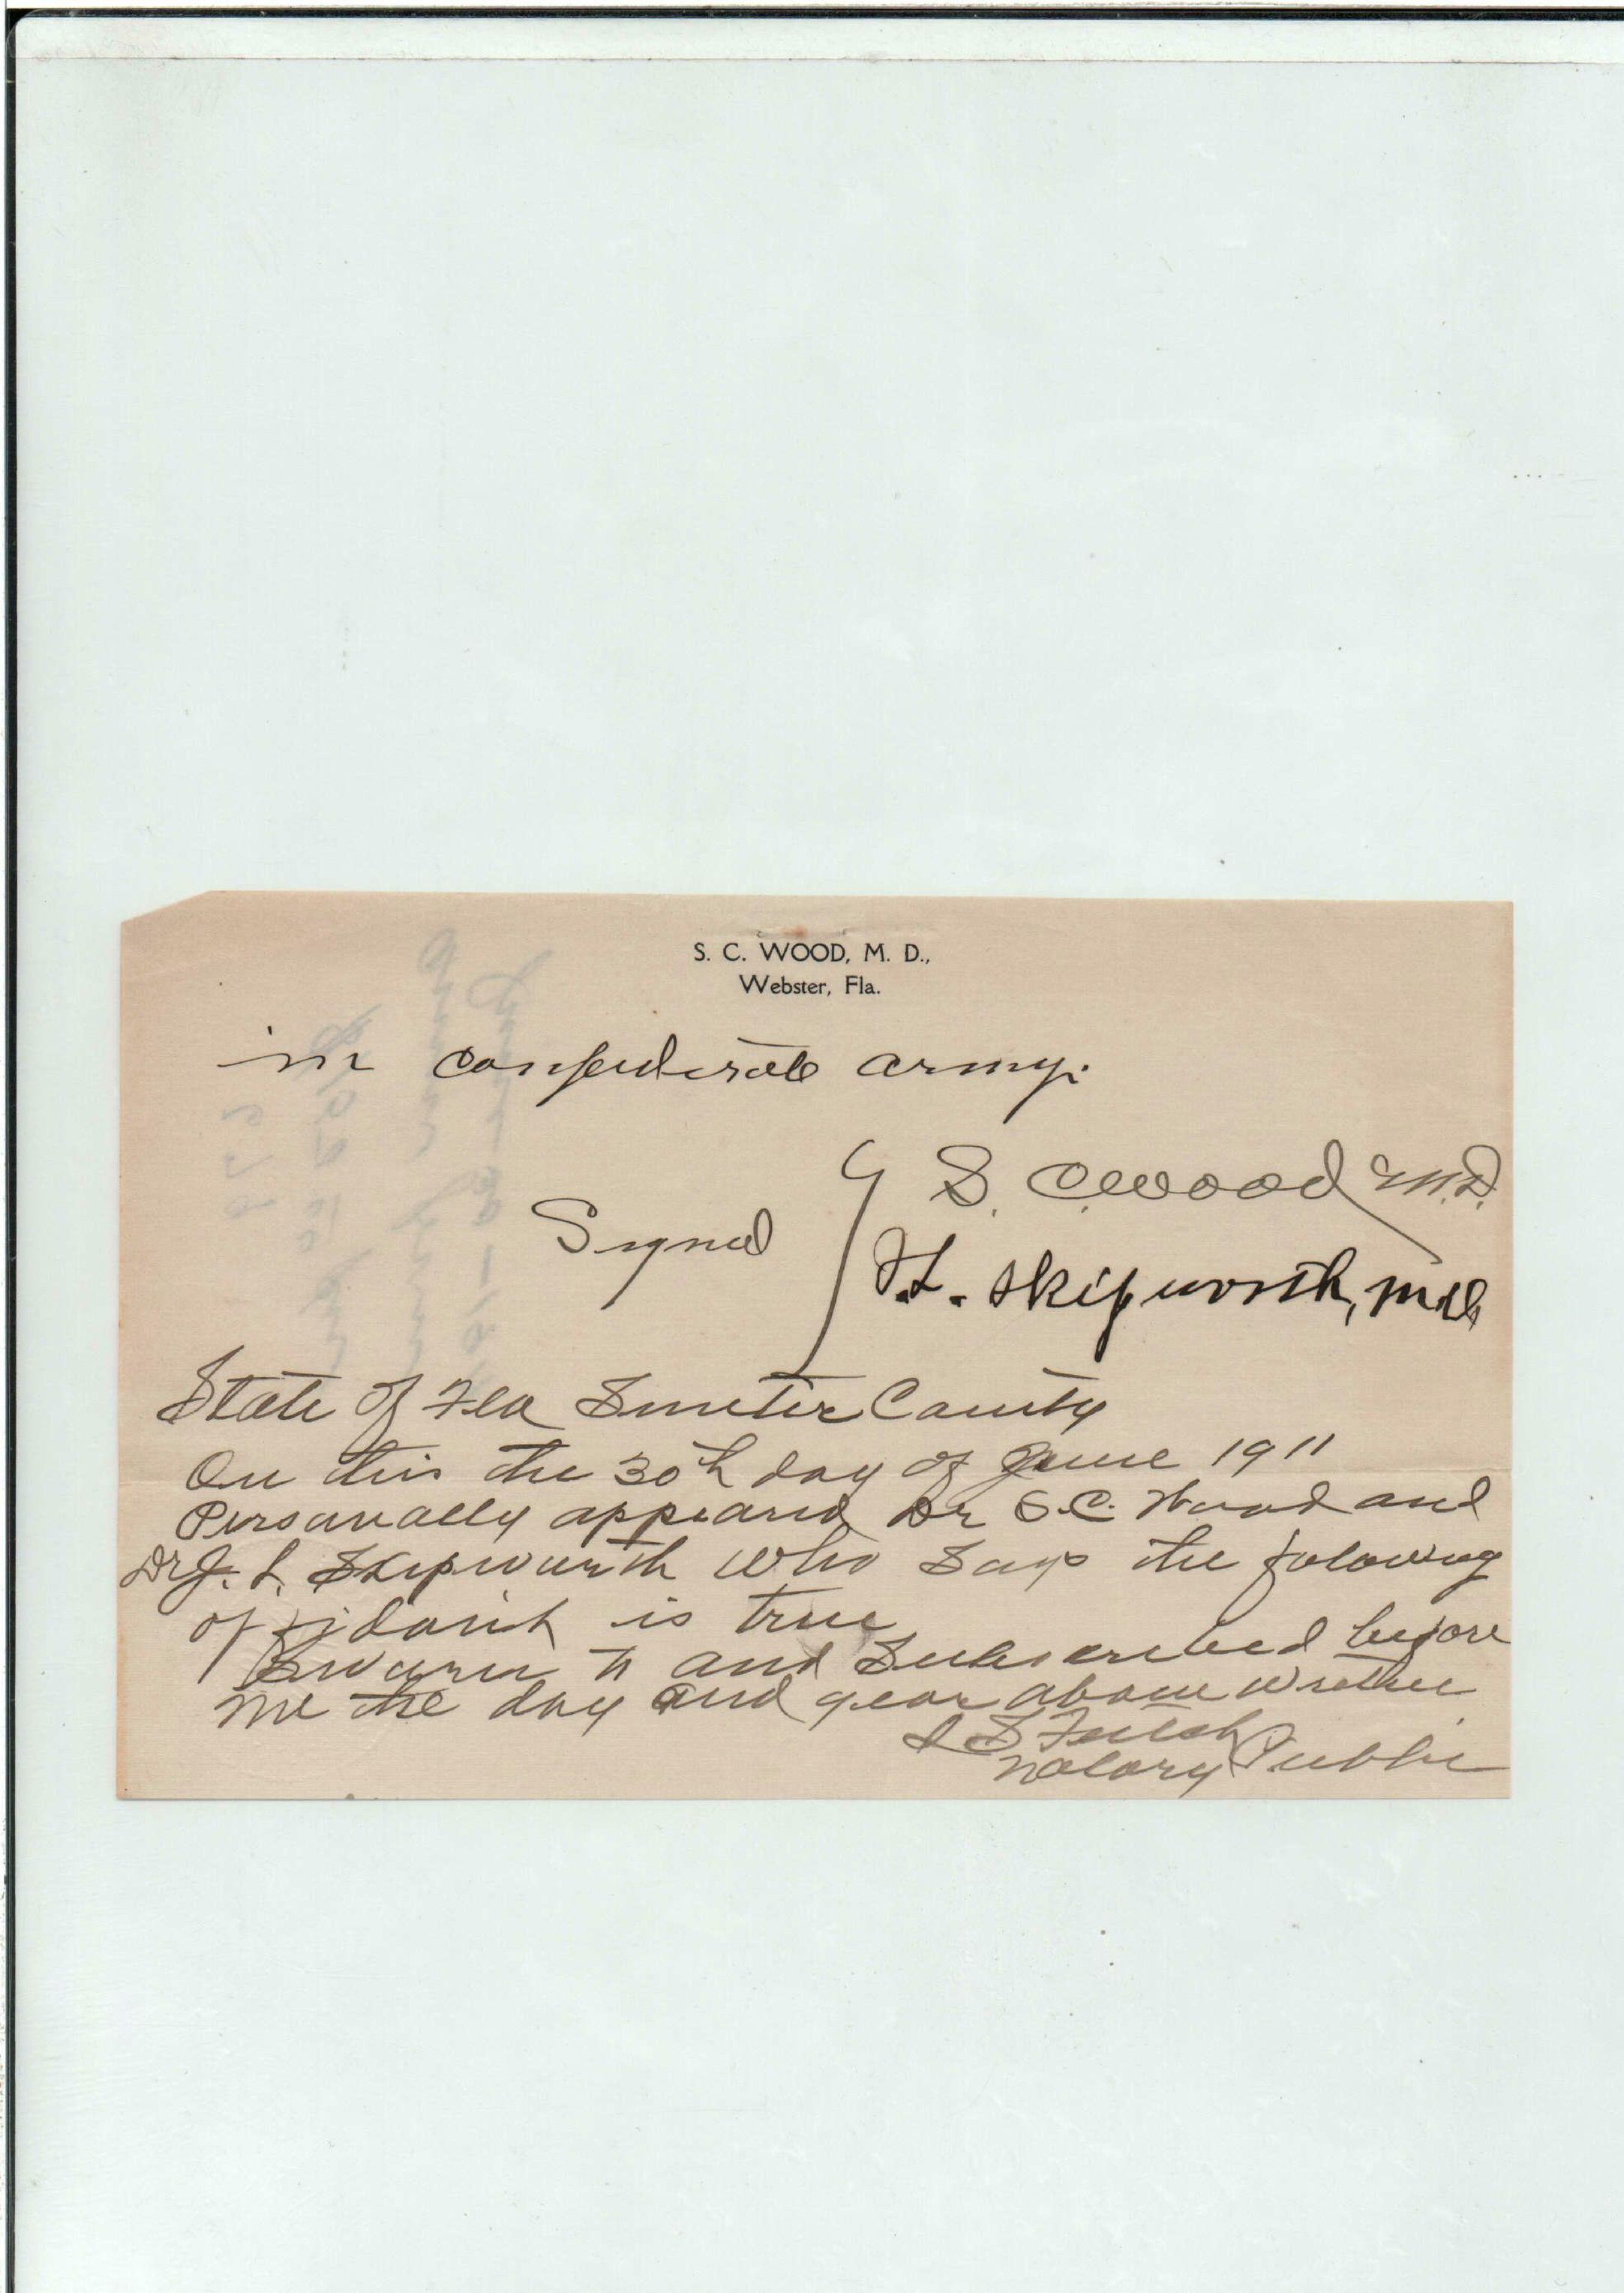 S. C. WOOD, M. D.,
Webster, Fla.
in confederate army.
S. C. Wood M.D.
Signed
J. L. Skipworth, M.D.
State of Fla Sumter County
On this the 30th day of June 1911
Personally appeared Dr S.C. Wood and
Dr J. L. Skipwurth who Says the folowing
affidavit is true
Swarn to and Subscribed before
me the day and year above written
Notary Public